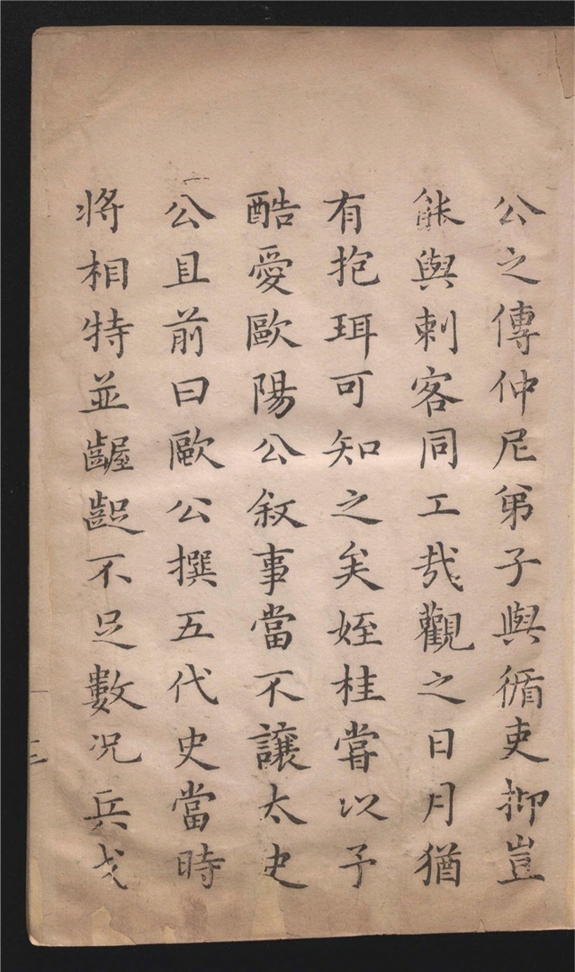 公之傳仲尼弟子與循吏抑豈
能與刺客同工哉觀之日月猶
有抱珥可知之矣姪桂嘗以予
酷愛歐陽公叙事當不讓太史
公且前曰歐公撰五代史當時
將相特並齷齪不足數况兵戈